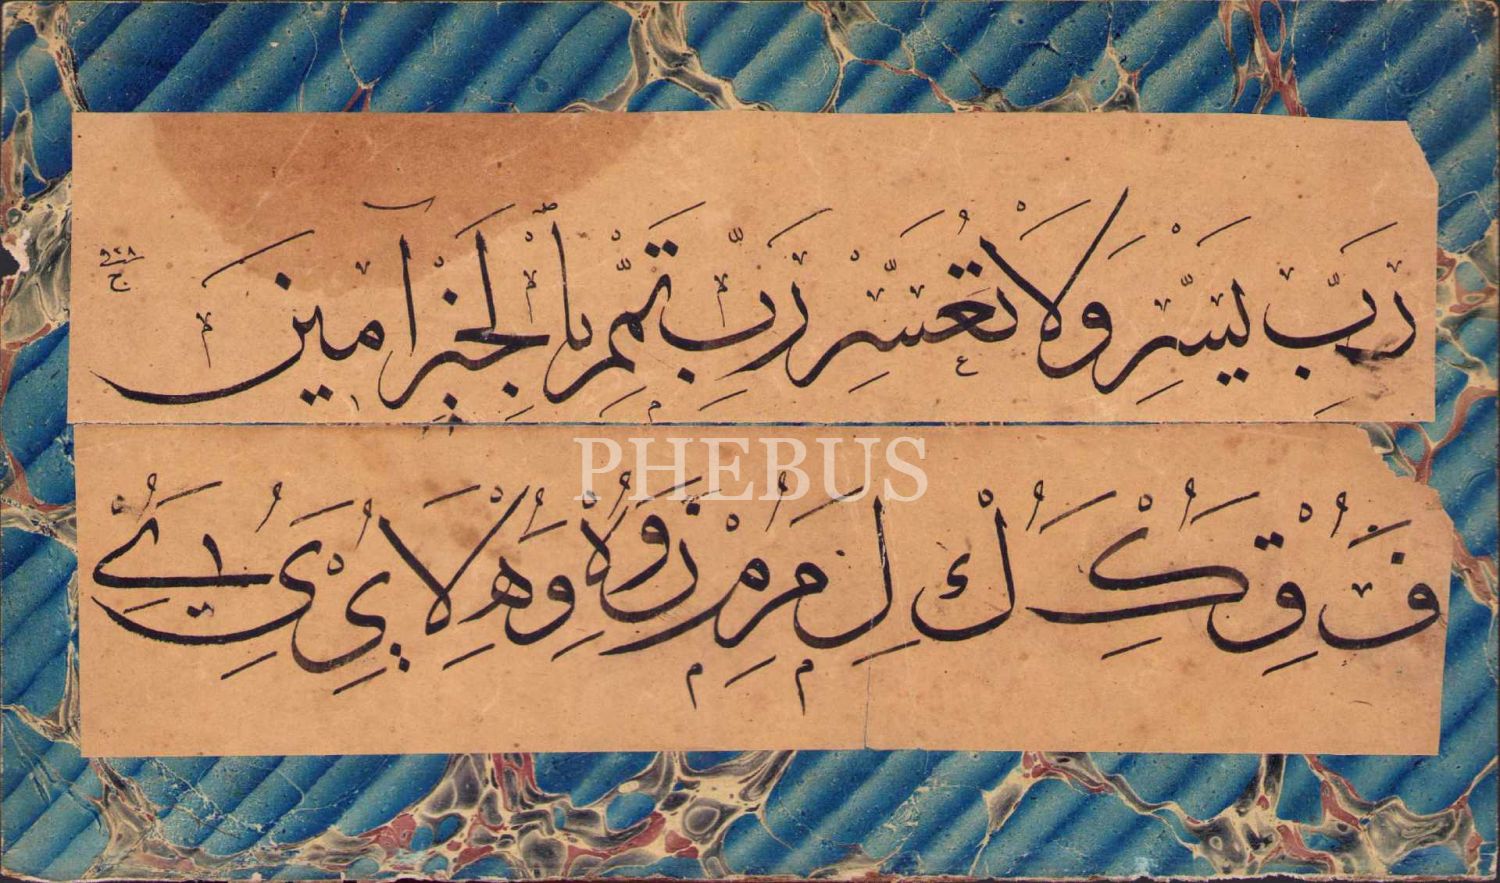 رَبِّ يَسِّرْ وَلَا تُعَسِّرْ رَبِّ تَمِّمْ بِالْخَيْرِ آمِينَ
PHEBUS
ف ق ك ك ل م م ن و ه و ه لا ى ى ے